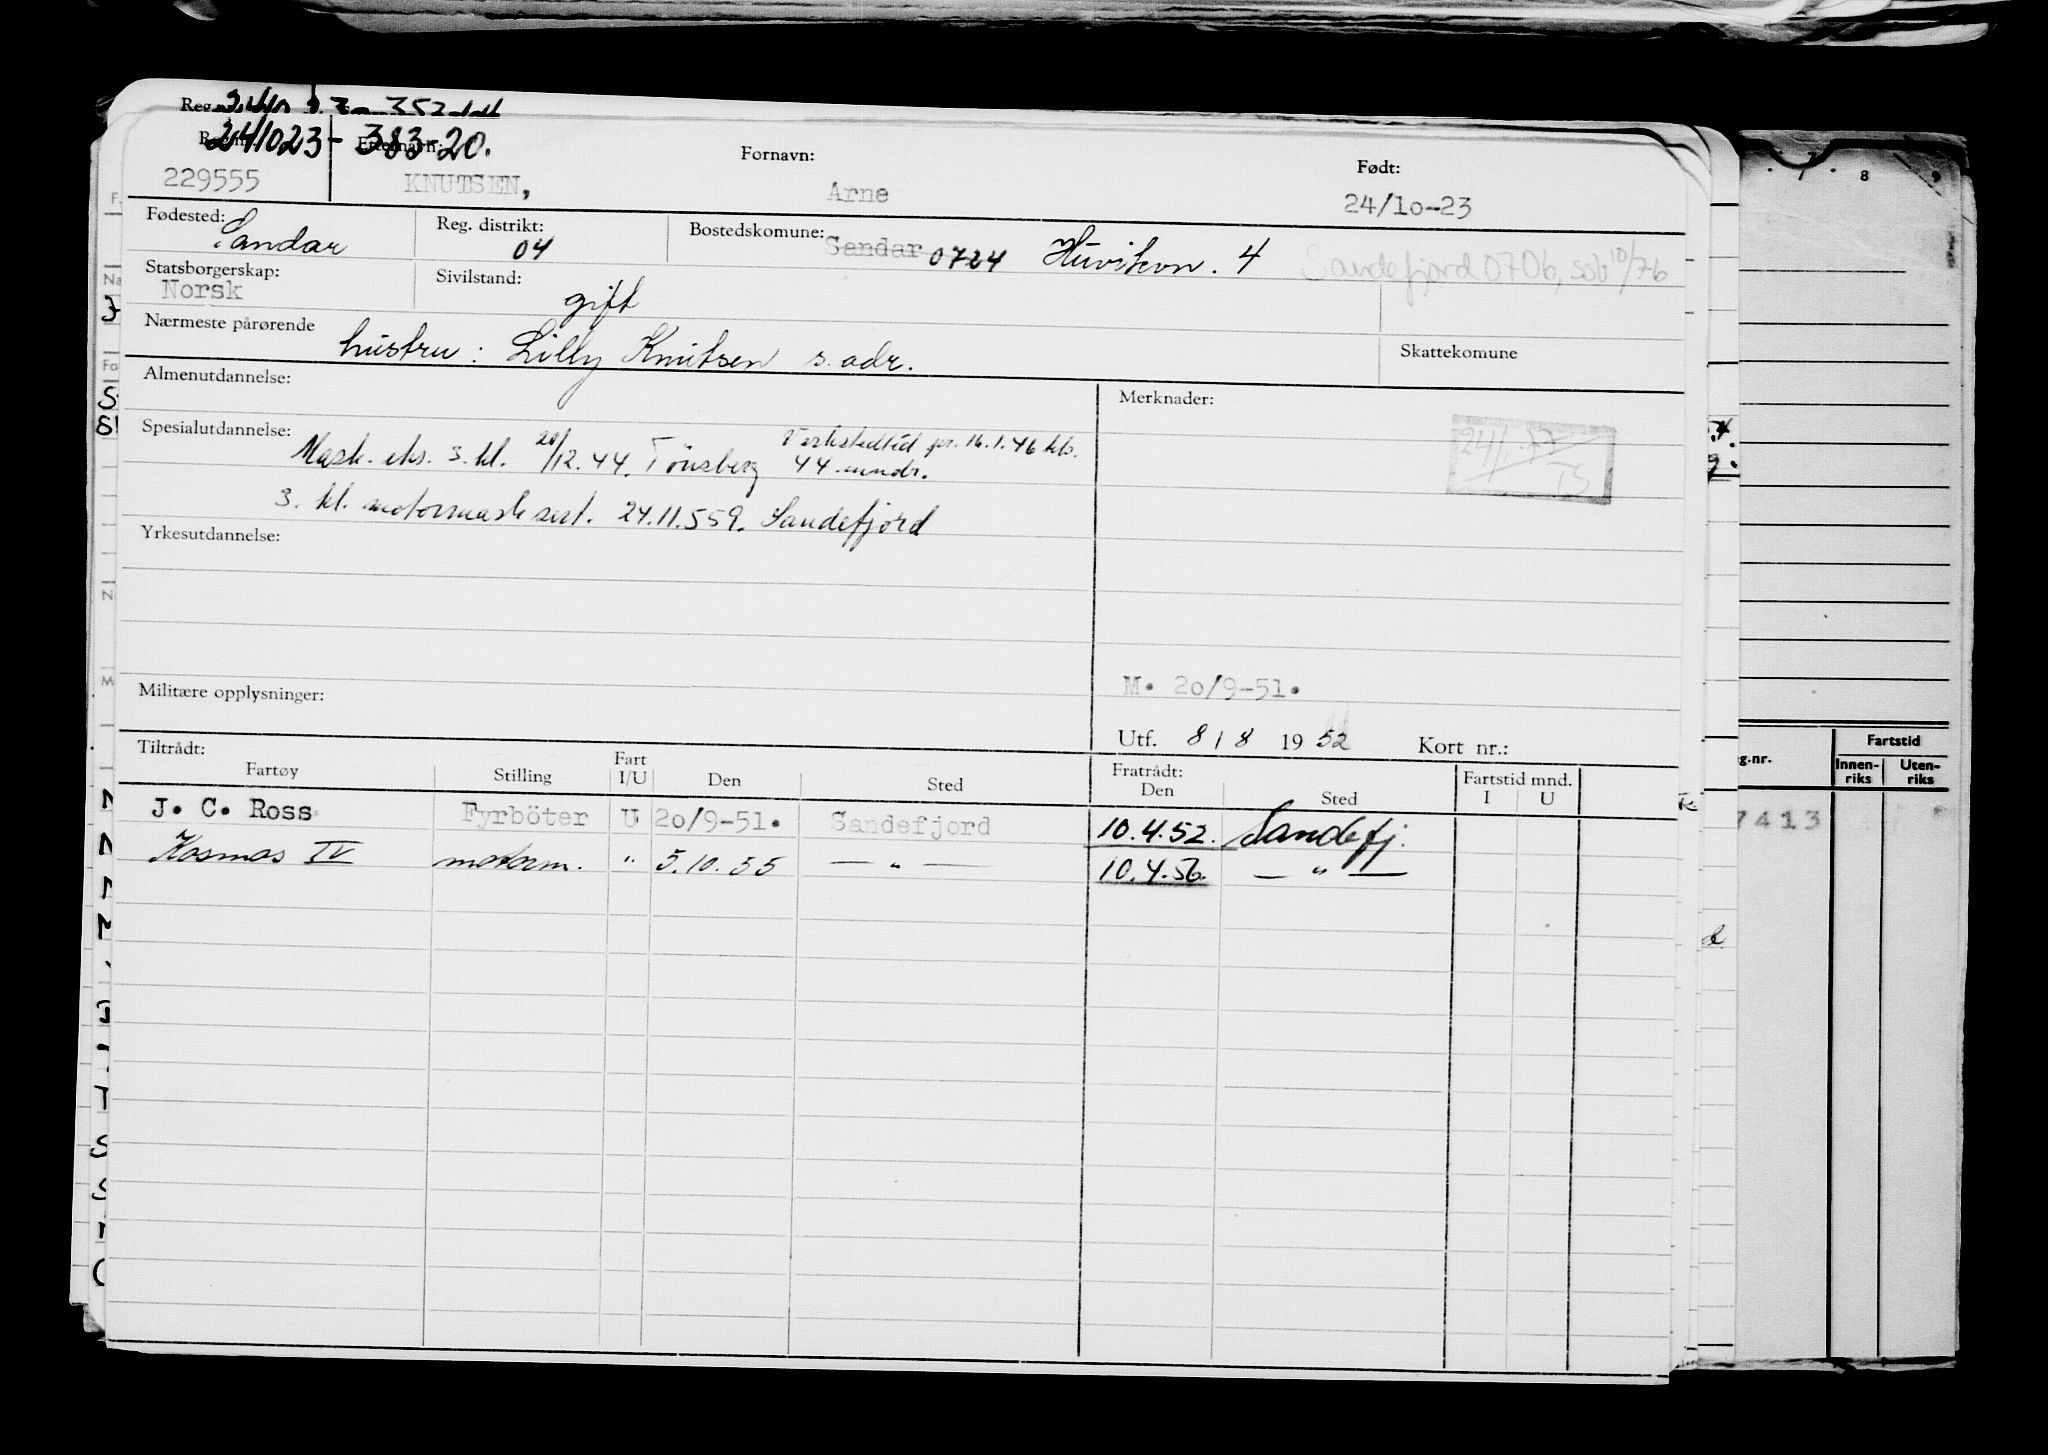 Reg.
241023-383-20.
Fornavn:
Født:
229555
KNUTSEN,
Arne
24/10-23
Fødested: Sandar
Reg. distrikt: 04
Bostedskomune: Sandar 0724 Huvikvn. 4 Sandefjord 0706, ssb 10/76
Statsborgerskap: Norsk
Sivilstand: gift
Nærmeste pårørende hustru: Lilly Knutsen s. adr.
Skattekomune
Almenutdannelse:
Merknader:
Spesialutdannelse: Mask. eks. 3. kl. 20/12.44. Tönsberg Verkstedtid pr. 16.1.46
44 mndr.
3. kl. motormask sert. 24.11.559. Sandefjord
Yrkesutdannelse:
M. 20/9-51.
Militære opplysninger:
Utf. 8/8 1952 Kort nr.:
Tiltrådt:
Fratrådt:
Fartøy Stilling Fart I/U Den Sted Den Sted Fartstid mnd. I U
J. C. Ross Fyrböter U 20/9-51. Sandefjord 10.4.52. Sandefj.
Kosmos IV motorm. " 5.10.55 — " — 10.4.56. — " —
7 8 9
g.nr.
Fartstid
Innen-riks
Uten-riks
7413